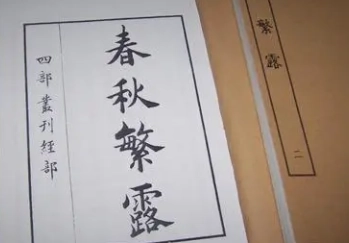 春秋繁露
四部叢刊經部
繁露
二